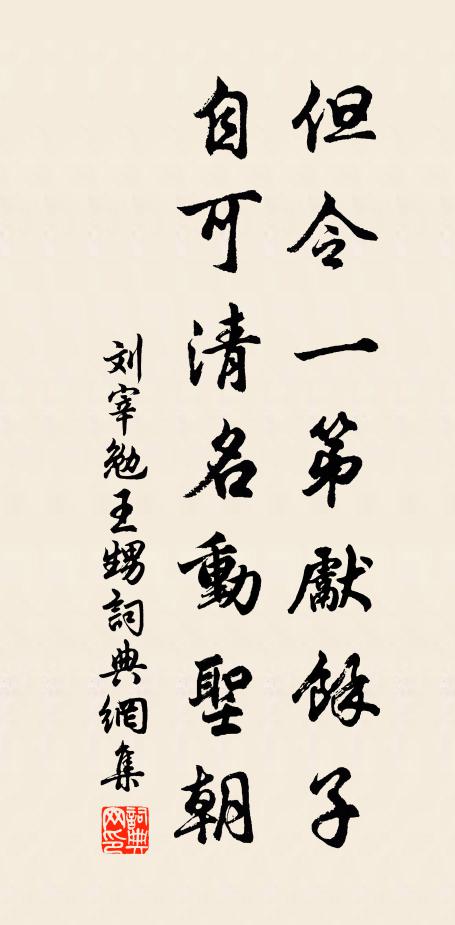 但令一第獻餘子
自可清名動聖朝
刘宰勉王甥詞典網集
詞典網印